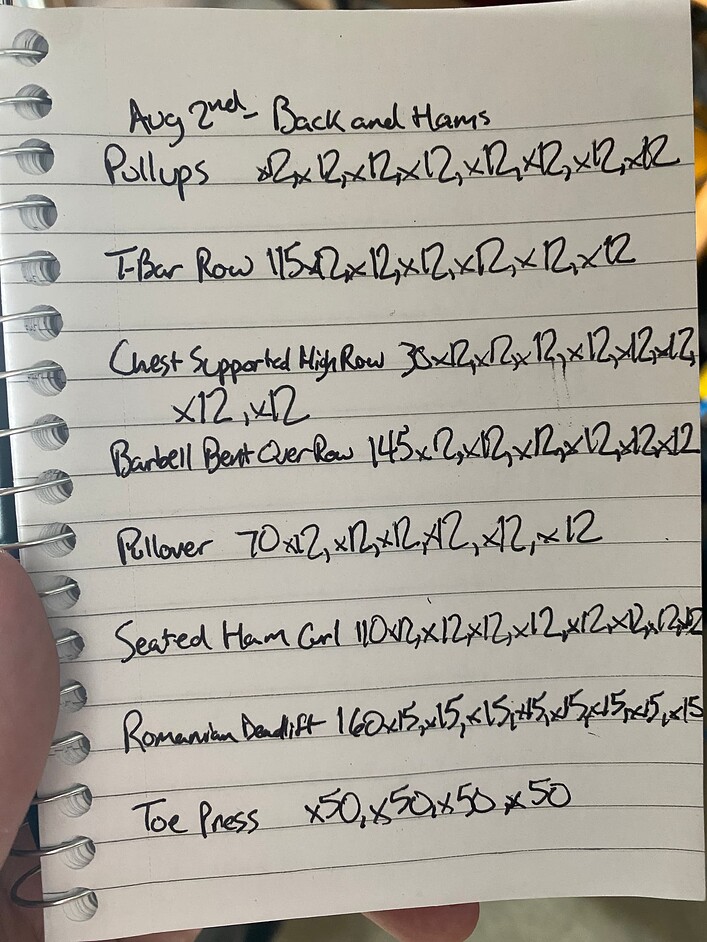 Aug 2nd- Back and Hams
Pullups x12,x12,x12,x12,x12,x12,x12,x12
T-Bar Row 115x12,x12,x12,x12,x12,x12
Chest Supported High Row 35x12,x12,x12,x12,x12,x12,
x12,x12
Barbell Bent Over Row 145x12,x12,x12,x12,x12,x12
Pullover 70x12,x12,x12,x12,x12,x12
Seated Ham Curl 110x12,x12,x12,x12,x12,x12,x12,x12
Romanian Deadlift 160x15,x15,x15,x15,x15,x15,x15,x15
Toe Press x50,x50,x50,x50